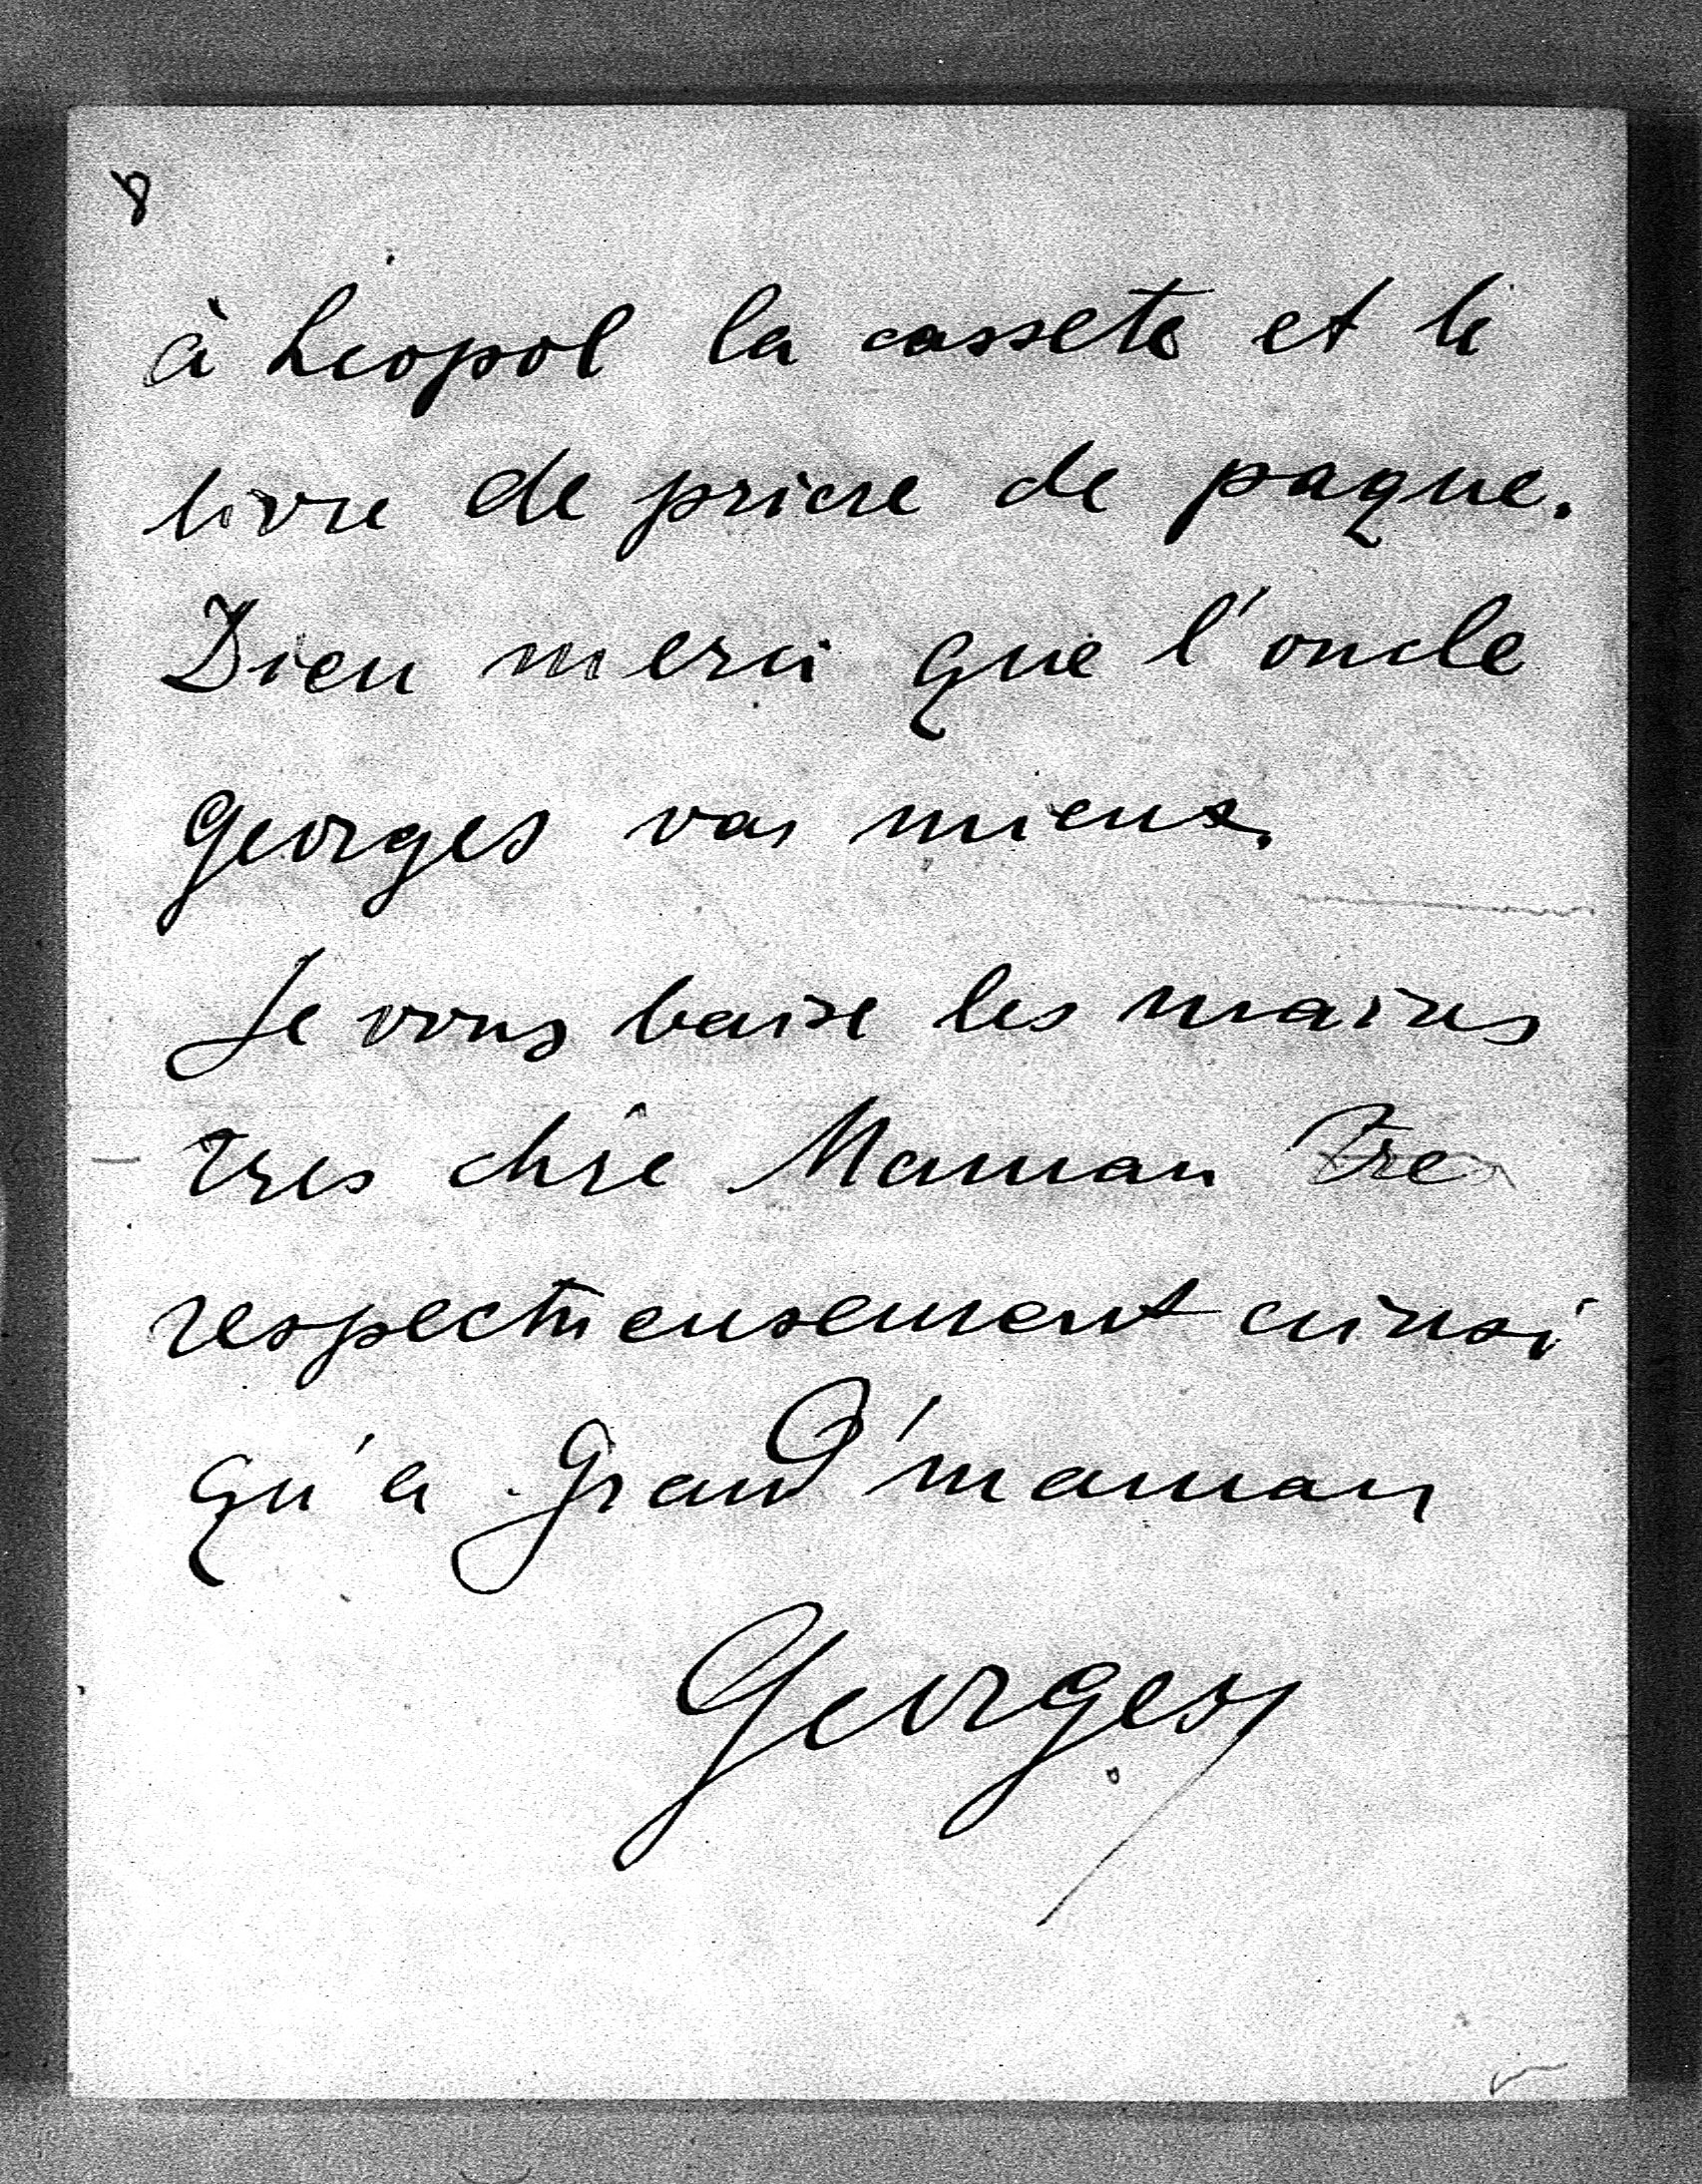 8
à Léopol la cassete et le
livre de priere de paque.
Dieu merci que l'oncle
Georges vas mieux.
Je vous baise les mains
tres chre Maman tres
respectueusement ainsi
qu'a Grand'maman
Georges